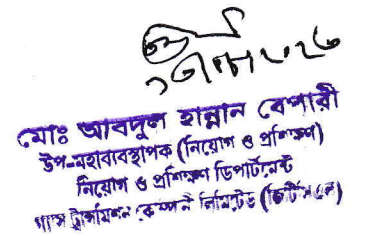 মোঃ আবদুল হান্নান বেপারী
উপ-মহাব্যবস্থাপক (নিয়োগ ও প্রশিক্ষণ)
নিয়োগ ও প্রশিক্ষণ ডিপার্টমেন্ট
গ্যাস ট্রান্সমিশন কোম্পানী লিমিটেড (জিটিসিএল)